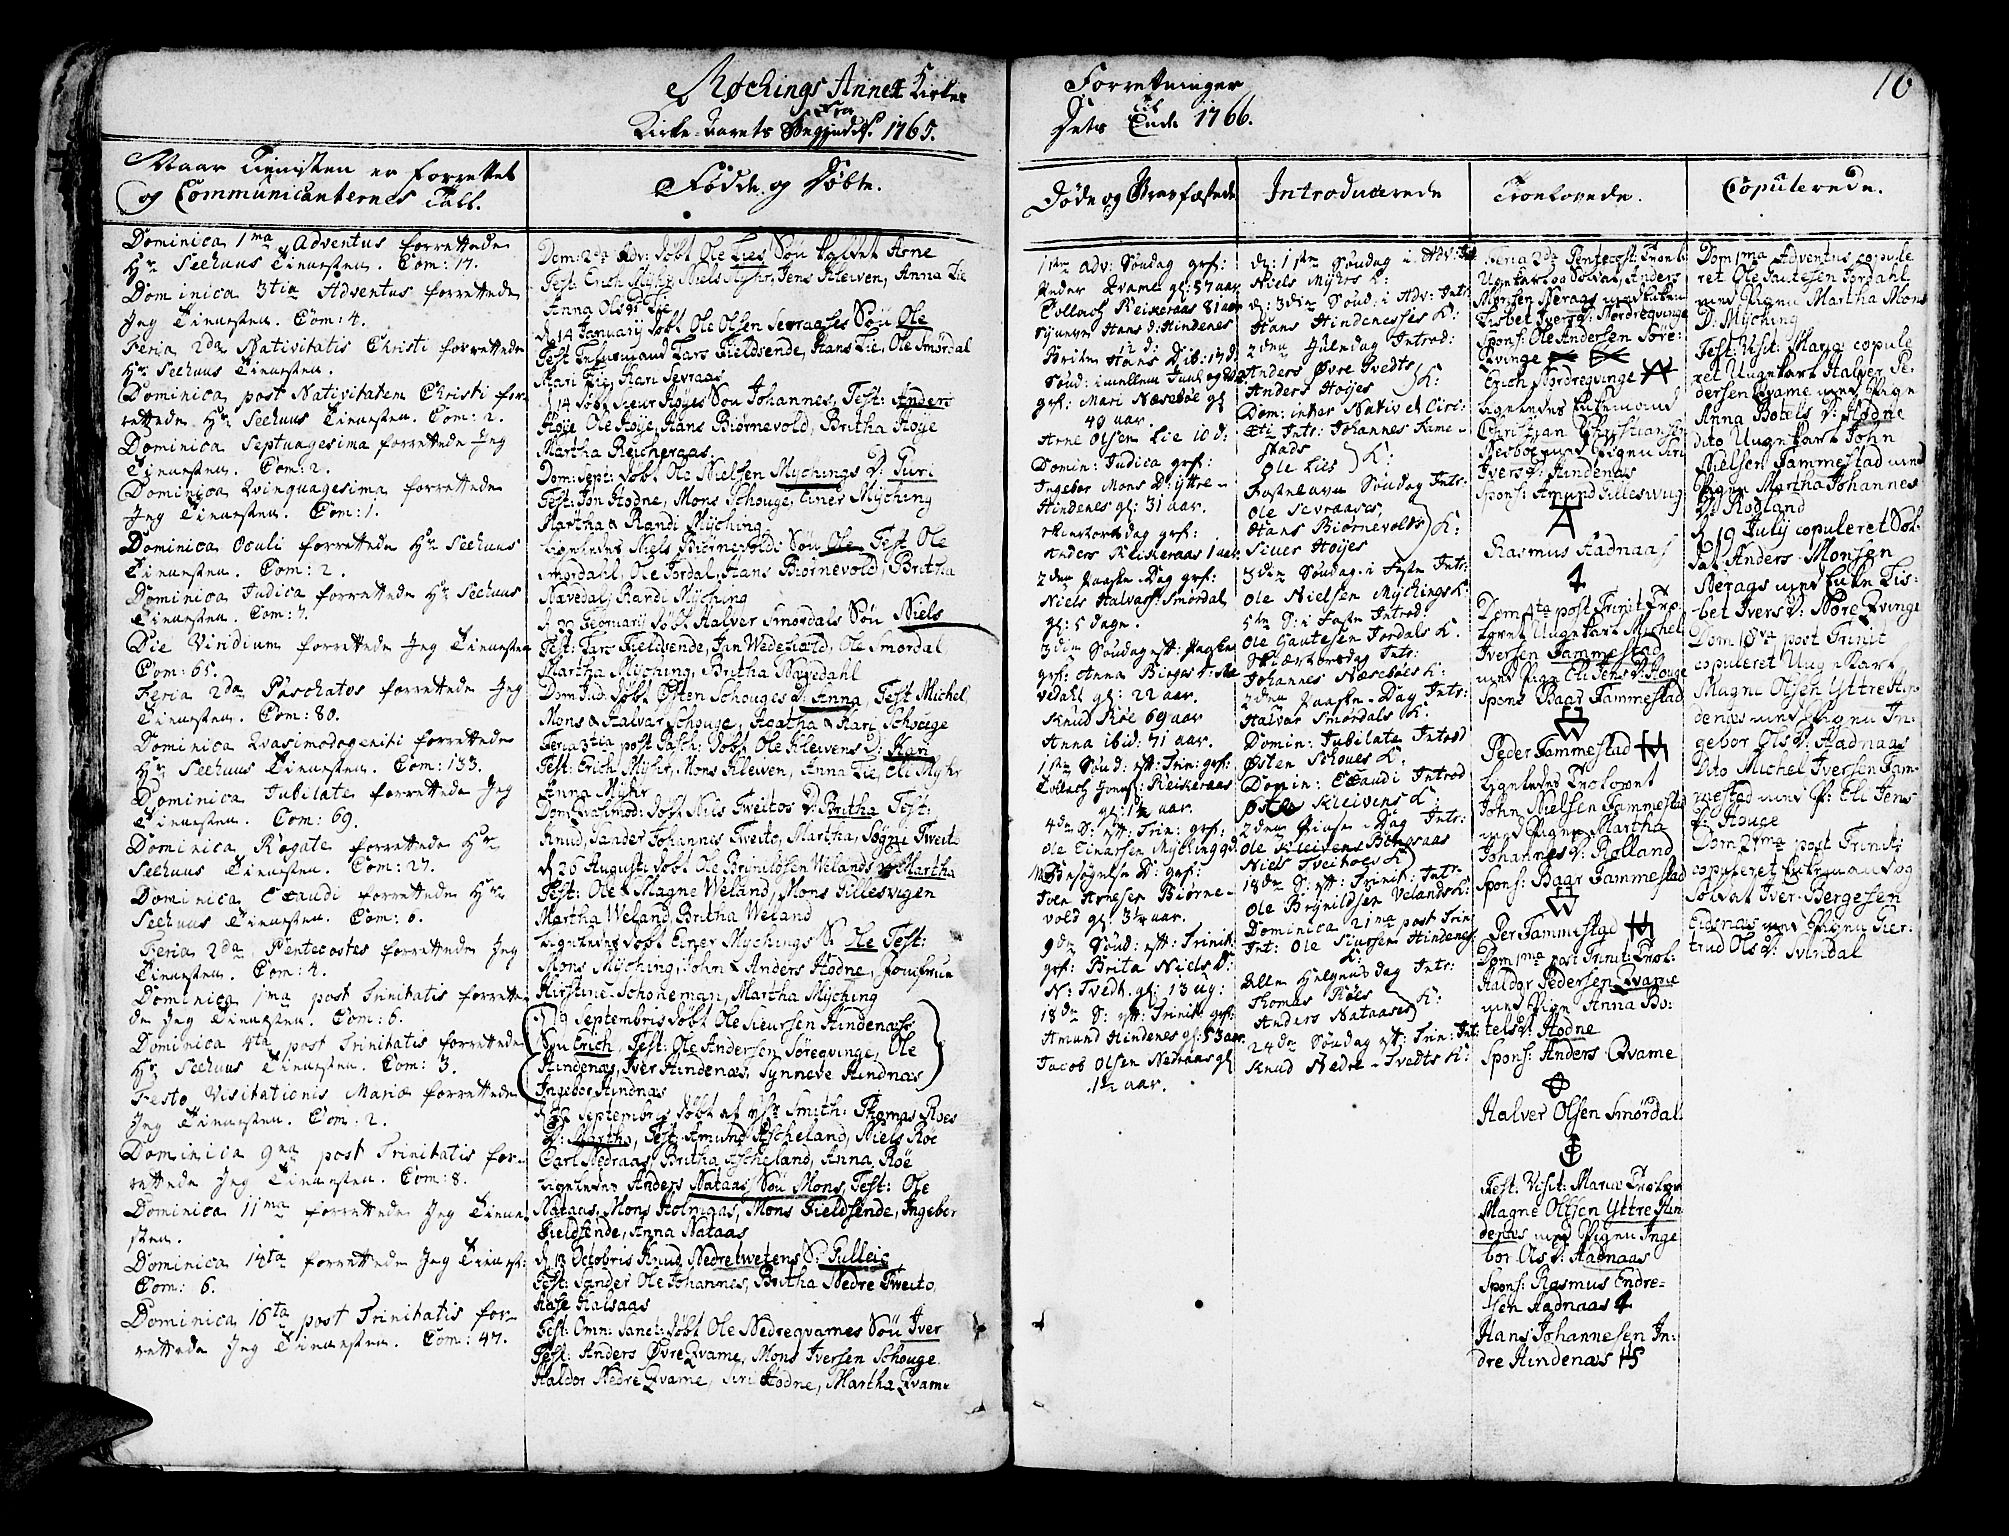 Møckings Annex Kirkes
Kirke-Aarets Begyndelse 1765.
Naar Tienisten er forrettet
og Communicanternes Tall.
Fødde og Døbte.
Dominica 1ma Adventus forrettede
Hr Seehuus Tienesten. Com: 17.
Dominica 3tia Adventus forrettede
Jeg Tienesten. Com: 4.
Feria 2da Nativitatis Christi forrettede
Hr Seehuus Tienesten.
Dominica post Nativitatem Christi for-
rettede Hr Seehuus Tienesten. Com: 2.
Dominica Septuagesima forrettede Jeg
Tienesten. Com: 2.
Dominica Qvinquagesima forrettede
Jeg Tienesten. Com: 1.
Dominica Oculi forrettede Hr Seehuus
Tienesten. Com: 2.
Dominica Judica forrettede Hr Seehuus
Tienesten. Com: 7.
Die Viridium forrettede Jeg Tienesten
Com: 65.
Feria 2da Paschatos forrettede Jeg
Tienesten. Com: 80.
Dominica Qvasimodogeniti forrettede
Hr Seehuus Tienesten. Com: 133.
Dominica Jubilate forrettede Jeg
Tienesten. Com: 69.
Dominica Rogate forrettede Hr
Seehuus Tienesten. Com: 27.
Dominica Exaudi forrettede Hr
Seehuus Tienesten. Com: 6.
Feria 2da Pentecostes forrettede Jeg
Tienesten. Com: 4.
Dominica 1ma post Trinitatis forrette-
de Jeg Tienesten. Com: 6.
Dominica 4ta post Trinitatis forrettede
Hr Seehuus Tienesten. Com: 3.
Festo Visitationis Mariæ forrettede
Jeg Tienesten. Com: 2.
Dominica 9na post Trinitatis for-
rettede Jeg Tienesten. Com: 8.
Dominica 11ma forrettede Jeg Tiene-
sten.
Dominica 14ta forrettede Jeg Tienest:
Com: 6.
Dominica 16ta post Trinitatis for-
rettede Jeg Tienesten. Com: 47.
Dom: 2da Adv: døbt Ole Lies Søn kaldet Arne
Test: Erich Myhr, Niels Myhr, Jens Kleiven, Anna Lie
Anna Olsd: Lie
d. 14 January døbt Ole Olsen Sevraases Søn Ole
Test: Lars Fieldsende, Hans Lie, Ole Smørdal
Mari Lie, Kari Sevraas
d. 14 døbt Sieur Høyes Søn Johannes, Test: Anders
Høye Ole Høye, Hans Biørnevold, Britha Høye
Martha Reicheraas.
Dom: Sept: døbt Ole Nielsen Mychings D: Guri
Test: Jon Hodne, Mons Schouge, Einer Myching
Martha & Randi Myching.
Ligeledes Niels Biørnevolds Søn Ole, Test: Ole
Smørdahl, Ole Fordal, Hans Biørnevold, Britha
Nævedal, Randi Myching
Februarij døbt Halver Smørdals Søn Niels
Test: Lars Fieldsende, Ole Smørdal
Martha Myching, Britha Nævedahl
Dom: Jud: døbt Østen Schouges D: Anna, Test: Michel
Mons & Halvar Schouge, Agatha & Kari Schouge
Feria 3tia post Pasch: døbt Ole Kleivens D: Kari
Test: Erich Myhr, Mons Kleiven, Anna Lie, Eli Myhr
Anna Myhr
Dom: Qvasimod: døbt Nils Tveitos D: Britha Test:
Knud, Sander Johannis Tveito, Martha, Søgni Tveito
d. 26 Augusti døbt Ole Brynildsen Velands D: Martha
Test: Ole & Magne Weland, Mons Lillesvigen
Martha Weland, Britha Weland
Ligeledes døbt Einer Mychings S: Ole Test:
Mons Myching, John & Anders Hodne, Jomfrue
Kirstine Schoneman, Martha Myching
d. 19 Septembris døbt Ole Sieursen Hindenæs
Søn Erich, Test: Ole Andersen Søreqvinge, Ole
Hindenæs, Iver Hindenæs, Synneve Hindnæs
Ingebor Hindnæs
d. 22 Septembris døbt af Hr Smith: Thomas Røes
D: Martha, Test: Amund Ascheland, Niels Røe
Carl Nedraas, Britha Ascheland, Anna Røe
Ligeledes Anders Nataas Søn Mons, Test: Ole
Nataas, Mons Holmaas, Mons Fieldsende, Ingebor
Fieldsende, Anna Nataas
d. 13 Octobris Knud Nedretwetens S: Gulleic
Test: Sander Ole Johannes, Britha Nedre Tweito,
Aase Halsaas
Fest: Omn: Sanct: døbt Ole Nedreqvames Søn Iver
Test: Anders Øvre Qvame, Mons Iversen Schouge
Haldor Nedre Qvame, Siri Hodne, Martha Qvame
Forretninger
Dets Ende 1766.
10
Døde og Gravfæstede
Introducerede
Troelovede.
Copulerede.
1ste Adv: Søndag grf:
Peder Qvame gl: 57 aar
Tollach Reikeraas 81 aar
Synneve Hans d: Hindenes
12 d:
Brithe Hans D ib: 17 d:
Sønd: imellem Juul og
grf: Mari Næsebøe gl
40 aar
Arne Olsen Lie 10 d:
Domin: Judica grf:
Ingebor Mons D: yttre-
Hindenes gl: 31 aar.
Skiertorsdag grf:
Anders Reikeraas 1 aar
2den Paaske-Dag grf:
Niels Halvars: Smørdal
gl: 5 dage.
3die Søndag eft: Paaske
grf: Anna Birges d: Næ-
vedahl gl: 22 aar.
Knud Røe 69 aar
Anna ibid: 71 aar.
1ste Sønd: eft: Trin: grf:
Tollach Reikeraas
gl: 1½ aar.
4de S: eft: Trin: grf:
Ole Einersen Myching
M: Besøgelse D: grf:
Joen Biørne-
vold gl: 3½ aar.
9de Sønd: eft: Trinit:
grf: Brita Niels D:
N: Tvedt. gl: 13 ug:
18de S: eft: Trinit: grf:
Amund Hindenes gl: 83 aar.
Jacob Olsen Nedraas gl
1½ aar.
d: 1ste Søndag i Adv: Int:
Niels Myhrs K:
d: 3die Sønd: i Adv: Int:
Hans Hindenesses K:
2den Juledag Introd:
Anders Øvre Tvedts
Anders Høyes K:
Dom: inter Nativ et Circ:
Xti Int: Johannes Rime-
stads
Ole Lies K:
Fastelavn Søndag Int:
Ole Sevraases,
Hans Biørnevolds K:
Siuer Høyes
3die Søndag i Faste Int:
Ole Nielsen Mychings K:
5te S: i Faste Introd:
Ole Gautesen Fordals K:
Skiærtorsdag Int:
Johannes Næsebøes K:
2den Paaske-Dag Int:
Halvar Smørdals K:
Domin: Jubilate Introd
Østen Schoues K:
Domin: Exaudi Introd
Kleivens K:
2den Pintse-Dag Int:
Ole Kleivens
Niels Tveitoes K:
18de S: eft: Trinit: Int:
Ole Brynildsen Velands K:
Dominica 21ma post Trin
Int: Ole Siursen Hindenes
K:
Alle Helgens Dag Int:
Thomas Røes
Anders Nataases K:
24de Søndag eft: Trin: Int:
Knud Nedre-Tvedts K:
Feria 2da Pentecost: Troel:
Ungkarl og Soldat, Anders
Monsen Neraas med Enken
Lisbet Ivers D: Nordreqvinge
Spons: Ole Andersen Søre-
Qvinge
Erich Nordreqvinge
Ligeledes Enkemand
Christian Christiansen
Nesbøe med Pigen Siri
Ivers D: Hindenæs
Spons: Amund Lillesvug
A
Rasmus Aadnaas
4
Dom: 4ta post Trinit Tro-
lovet Ungkarl Michel
Iversen Tammestad
med Pigen Eli Jens D: Houge
Spons Baar Tammestad
Peder Tammestad
Ligeledes Trolovet
John Nielsen Tammestad
med Pigen Martha
Johannes D: Rolland
Spons: Baar Tammestad
Per Tammestad
Dom 1ma post Trinit: Trol:
Haldor Pedersen Qvame
med Pigen Anna Bo-
tels D: Hodne
Spons: Anders Qvame
Halver Olsen Smørdal
Fest: Visit: Mariæ Trolov:
Magne Olsen Yttre Hin-
denæs med Pigen Inge-
bor Ols D: Aadnaas
Spons: Rasmus Endre-
sen Aadnaas 4
Hans Johannesen In-
dre Hindenæs HS
Dom 1ma Adventus copule-
ret Ole Gautesen Fordahl
med Pigen Martha Mons
D: Myching
Fest: Visit: Maria copule-
ret Ungkarl Halver Pe-
dersen Qvame med Pigen
Anna Botels D: Hodne
dito Ungkarl John
Nielsen Tammestad med
Pigen Martha Johannes
D: Rodland
d. 19 July copuleret Sol-
dat Anders Monsen
Neraas med Enken Lis-
bet Ivers D: Nore Qvinge
Dom 18va post Trinit
copuleret Ungkarl
Magne Olsen Yttre Hin-
denæs med Pigen In-
gebor Ols D: Aadnaas
Dito Michel Iversen Tam-
mestad med P: Eli Jens
D: Houge
Dom 21ma post Trinit:
copuleret Enkemand og
Soldat Iver Bergesen
Eidsnæs med Pigen Gier-
trud Ols D: Svindal